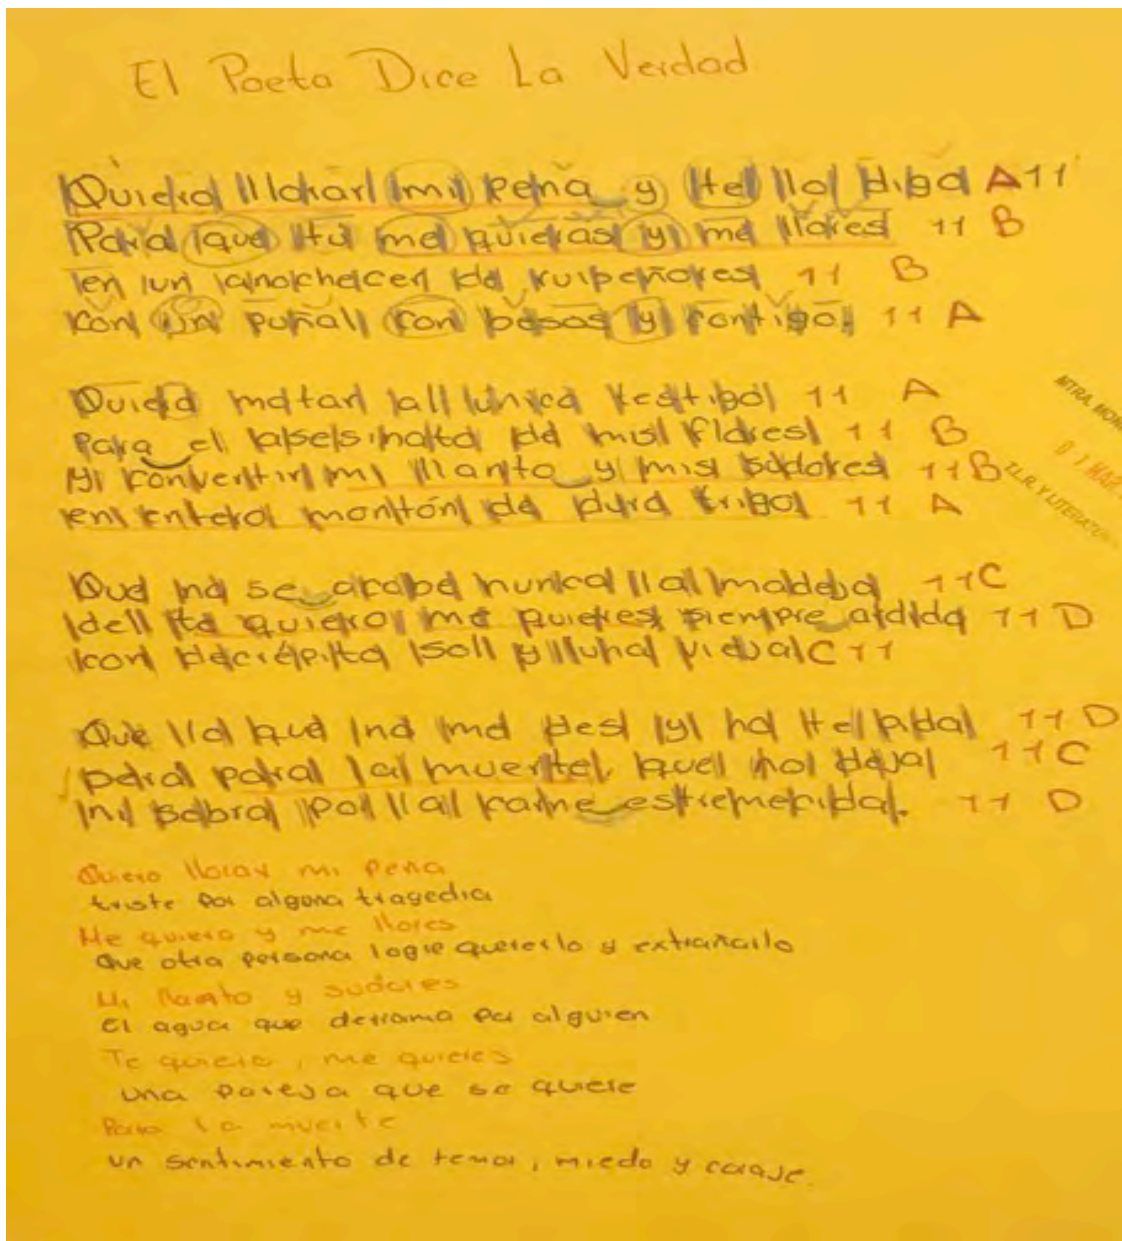 El Poeta Dice La Verdad
Quiero llorar mi pena y te lo digo A 11
Para que tú me quieras y me llores 11 B
en un anochecer de ruiseñores 11 B
con un puñal con besos y contigo. 11 A
Quiero matar al único testigo 11 A
Para el asesinato de mis flores 11 B
Y convertir mi llanto y mis sudores 11 B
en entero montón de duro trigo 11 A
Que no se acabe nunca la madeja 11 C
del te quiero, me quieres, siempre ardida 11 D
con decrépito sol y luna vieja C 11
Que lo que no me des y no te pida 11 D
pero para la muerte, que no deja 11 C
ni sobra por la carne estremecida. 11 D
MTRA.
01 MAR
Z.L.R. Y
Quiero llorar mi pena
triste por alguna tragedia
Me quiero y me llores
Que otra persona logre quererlo y extrañarlo
Mi llanto y sudores
El agua que derrama por alguien
Te quiero, me quieres
una pareja que se quiere
Para la muerte
un sentimiento de temor, miedo y coraje.